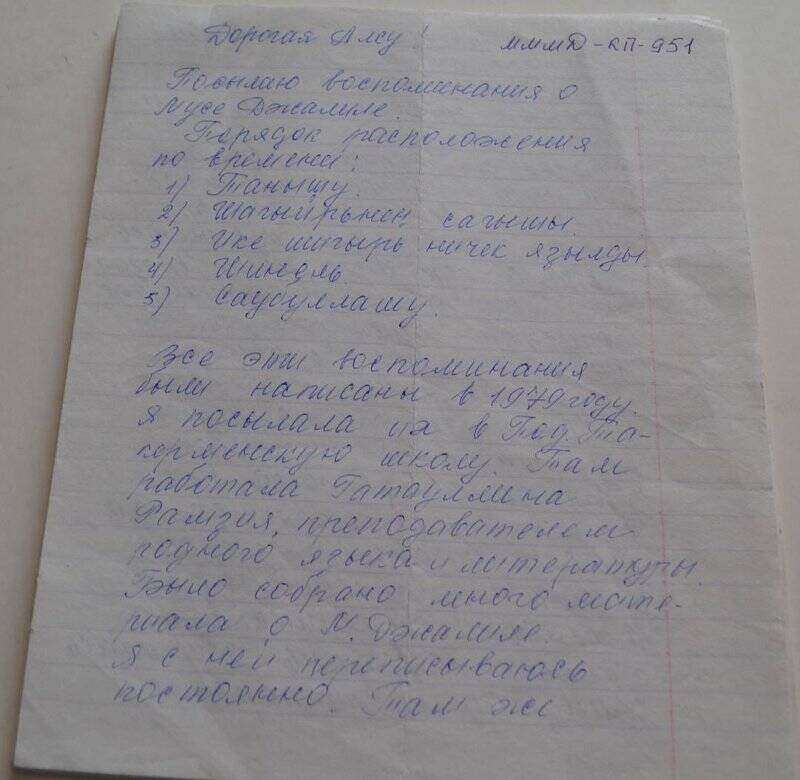 Дорогая Алсу!
МММД-КП-951
Посылаю воспоминания о
Мусе Джалиле.
Порядок расположения
по времени:
1) Танышу.
2) Шагыйрьнең сагышы.
3) Ике шигырь ничек язылды
4) Шинель
5) Саубуллашу.
Все эти воспоминания
были написаны в 1979 году.
Я посылала их в Под. Та-
керменскую школу. Там
работала Гатауллина
Рамзия, преподавателем
родного языка и литературы.
Было собрано много мате-
риала о М. Джалиле.
Я с ней переписываюсь
постоянно. Там же